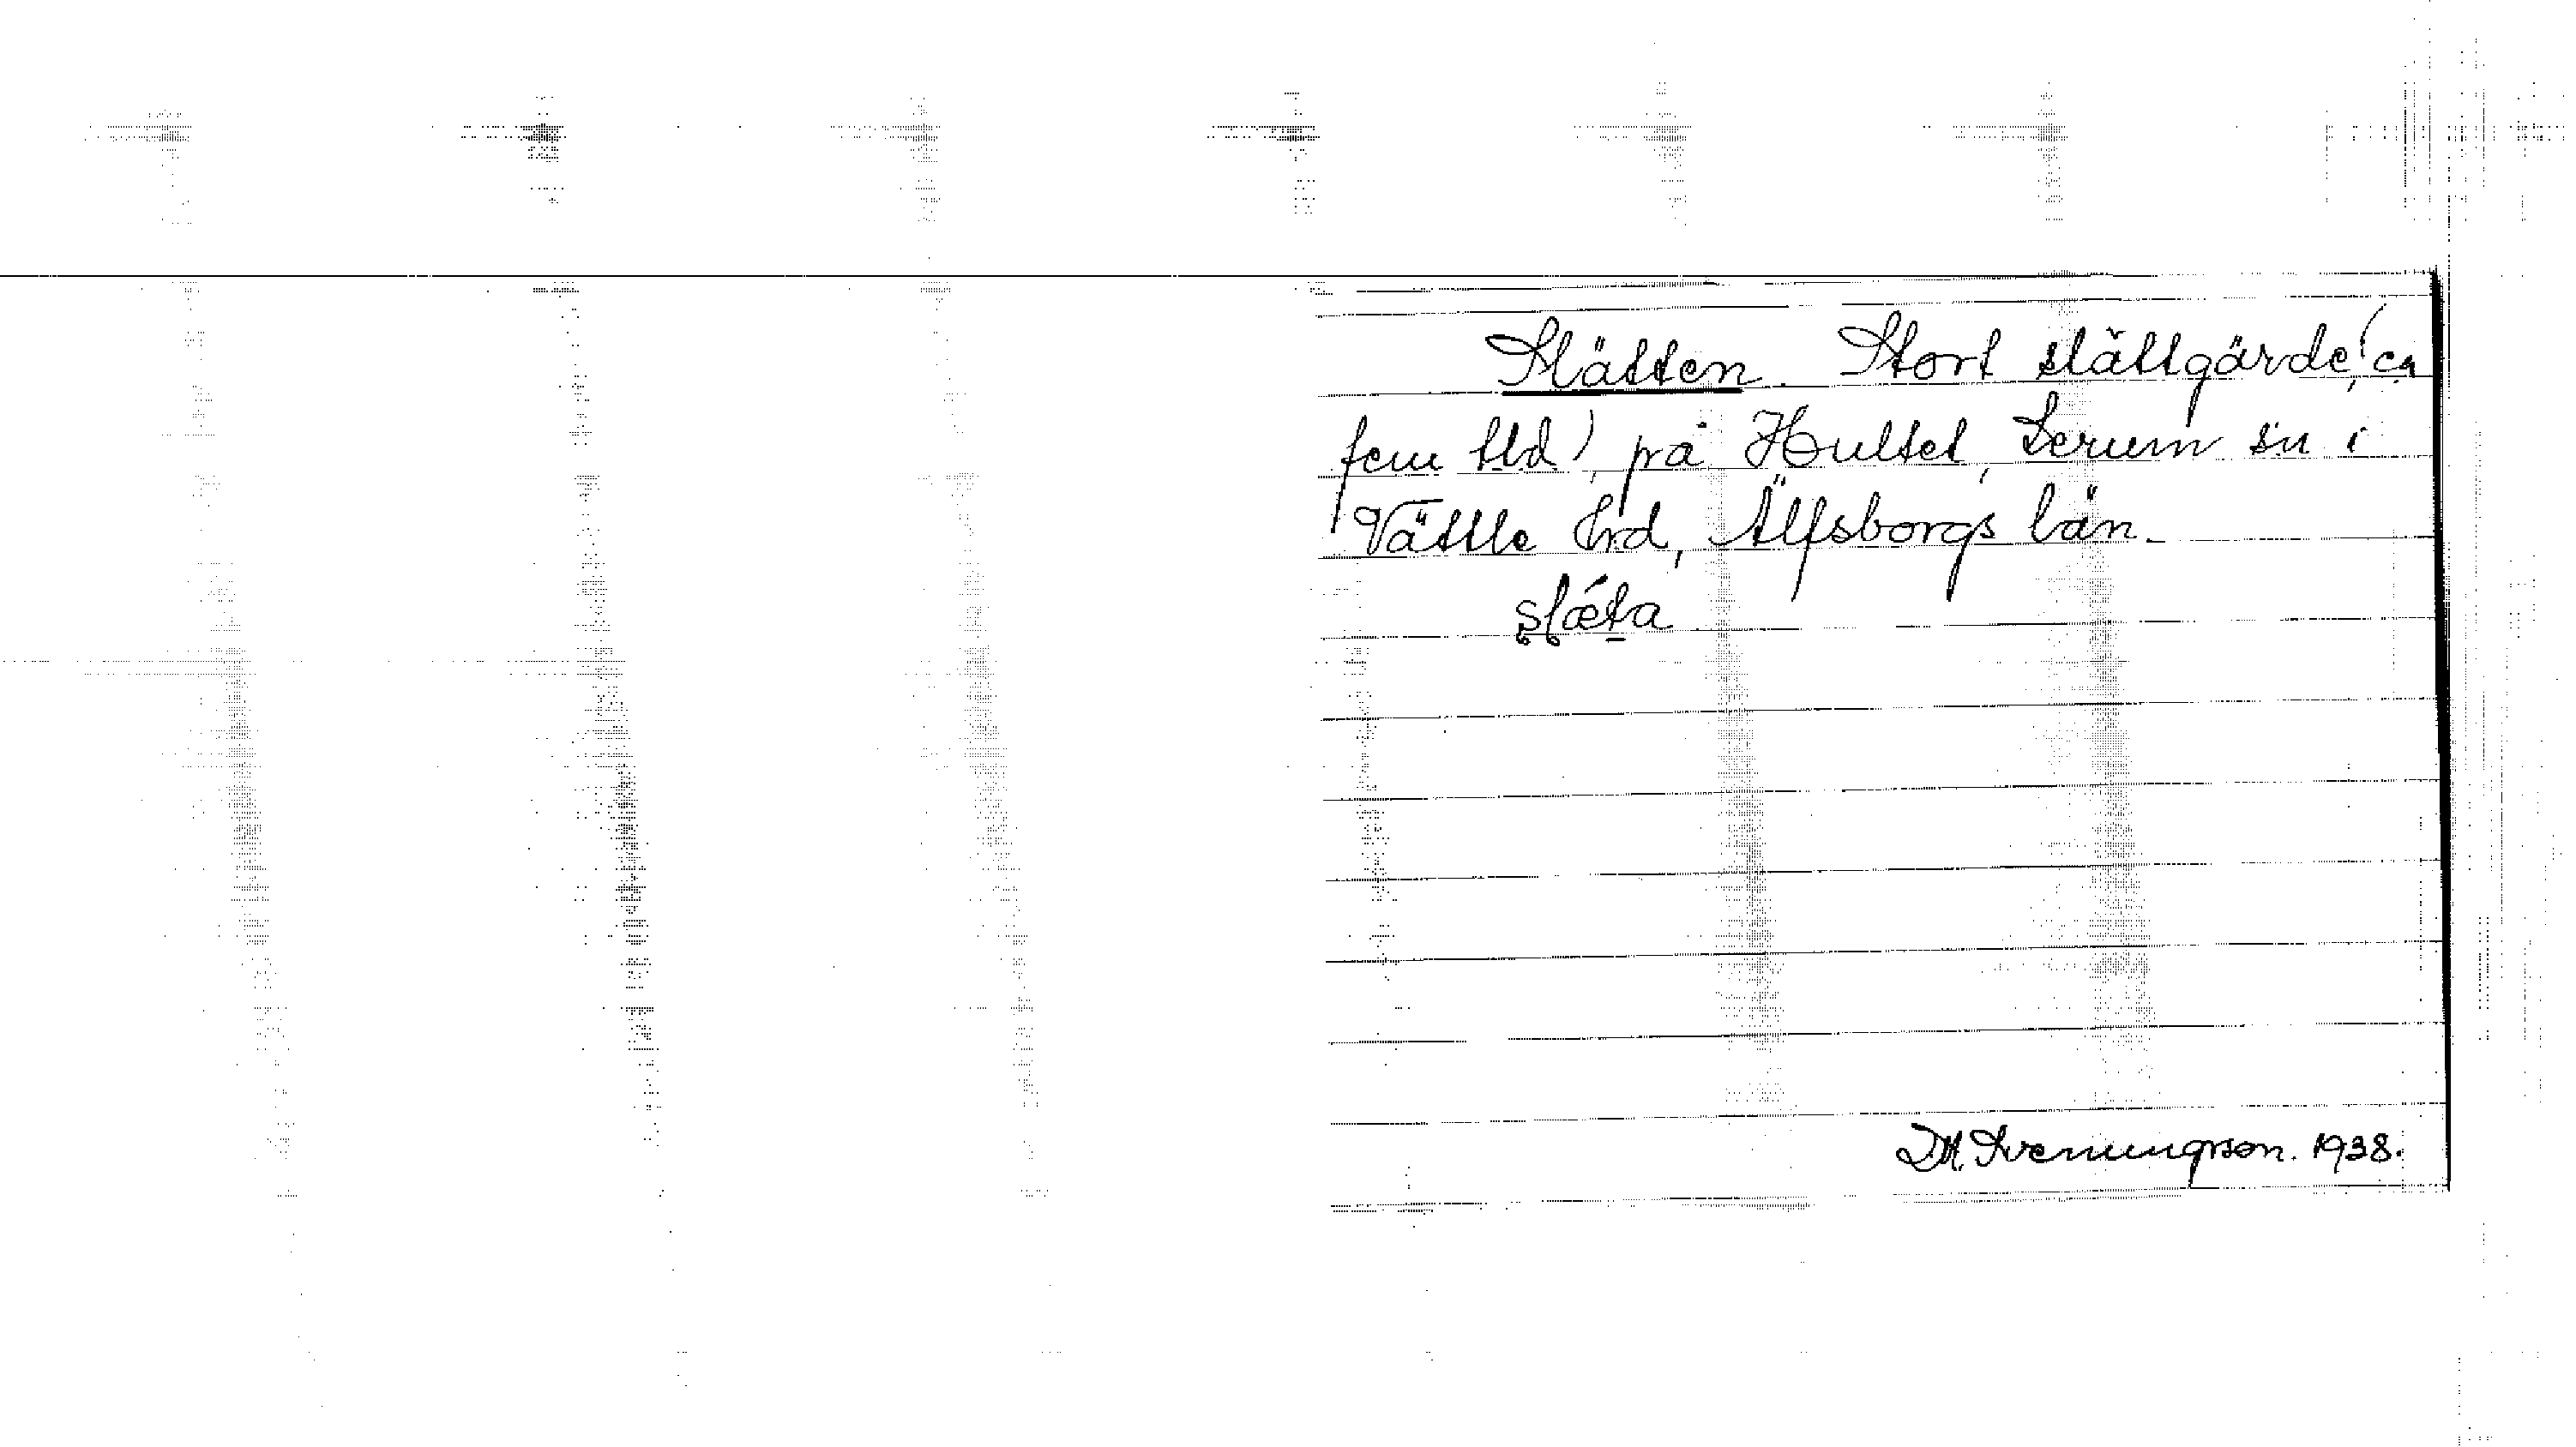 Slätten. Stort slättgärde, (ca
fem tld) på Hultet, Lerum sn i
Vättle hrd, Älfsborgs län.
slǽta
1938.